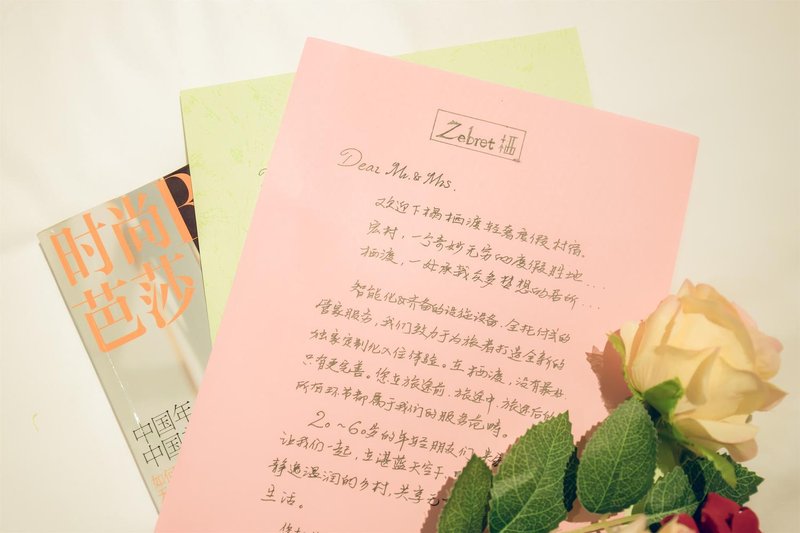 Zebret 栖
Dear Mr. & Mrs.
欢迎下榻栖渡轻奢度假村宿。
宏村，一个奇妙无穷的度假胜地...
栖渡，一处承载众多梦想的居所...
智能化&齐备的设施设备、全托付式的
管家服务，我们致力于为旅者打造全新的
独家定制化入住体验。在栖渡，没有最好
只有更完善。您在旅途前、旅途中、旅途后的
所有环节都属于我们的服务范畴。
20~60岁的年轻朋友们
让我们一起，在湛蓝天空下
静逸温润的乡村，共享
生活。
时尚
芭莎
中国年
中国
如何